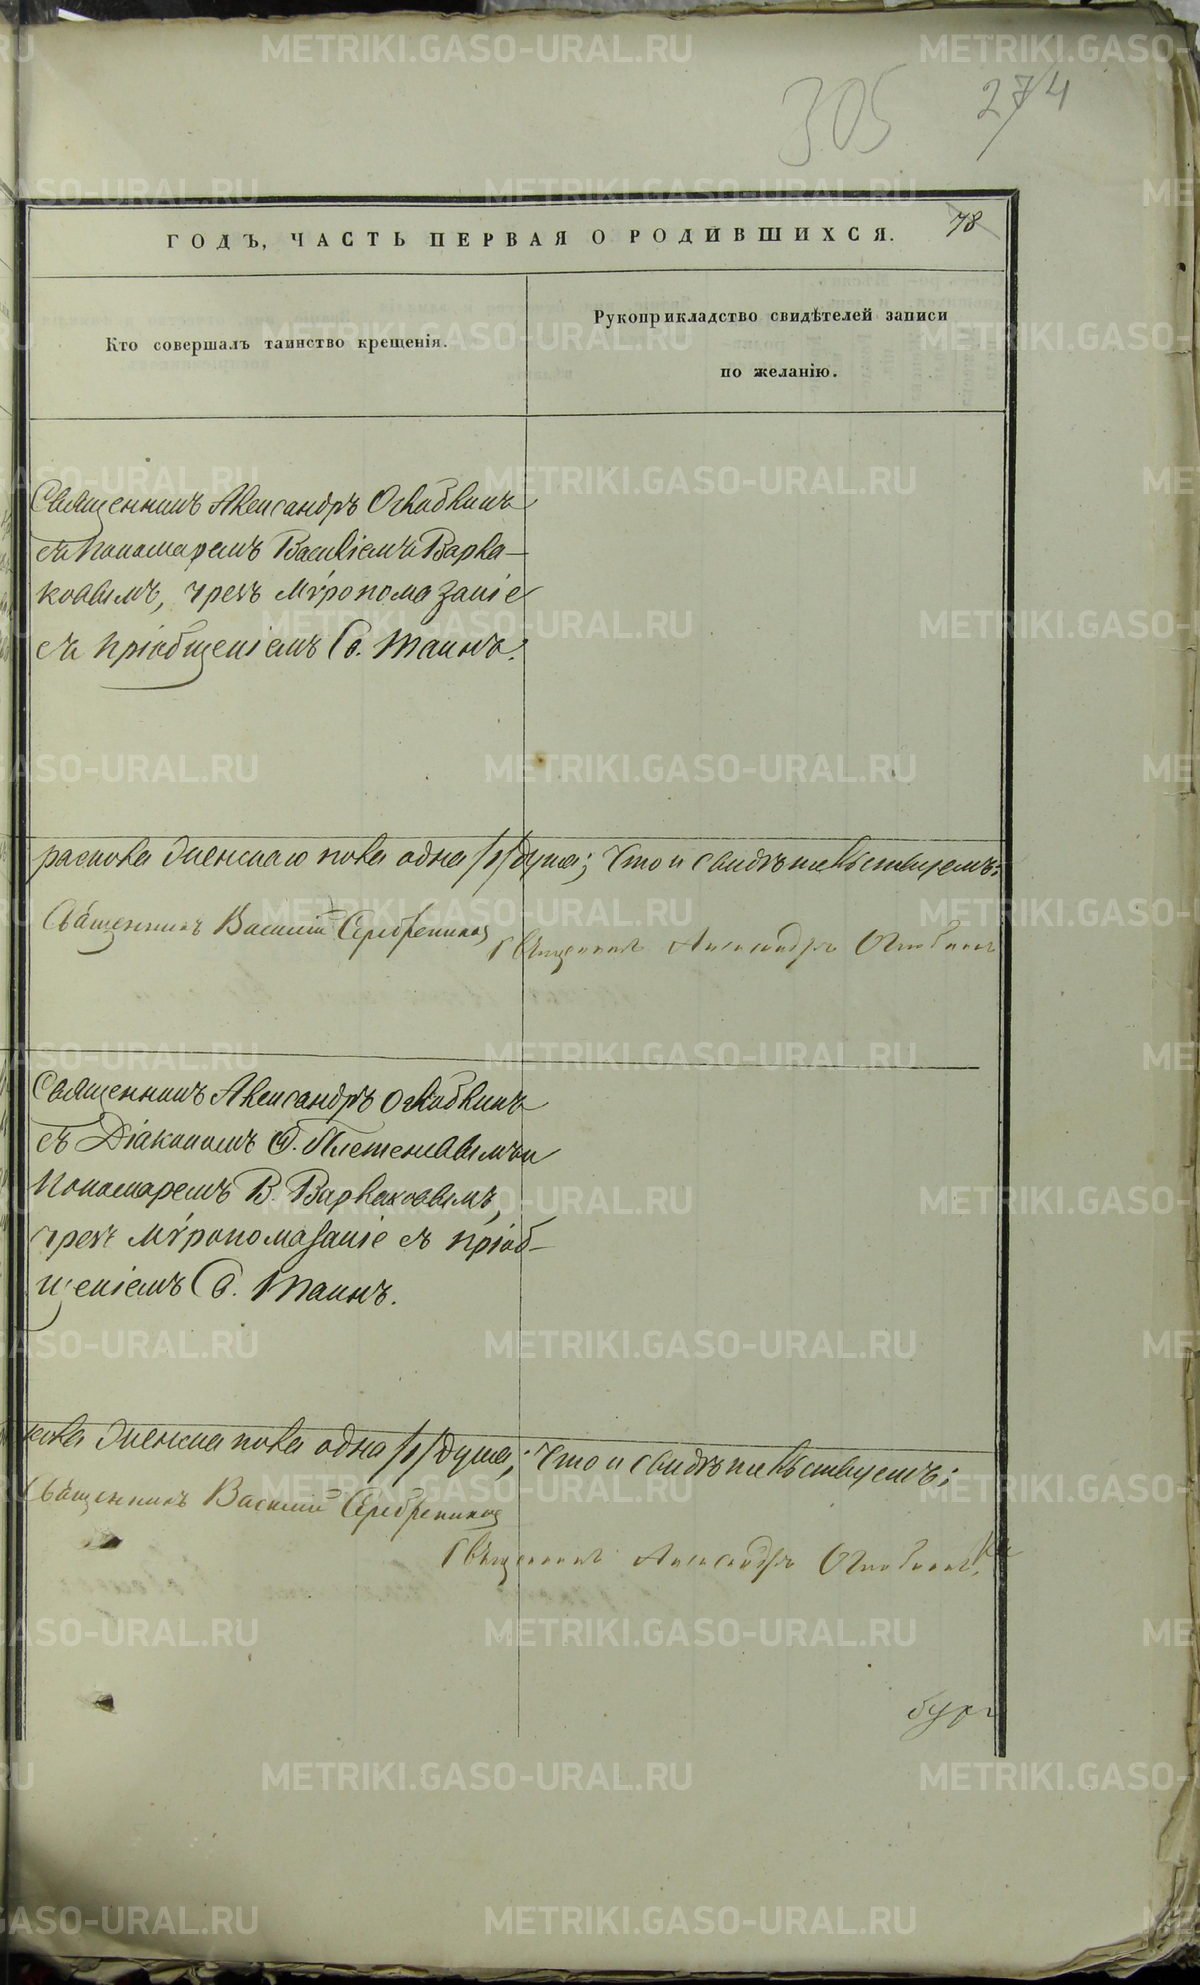 305
274
ГОДЪ, ЧАСТЬ ПЕРВАЯ О РОДИВШИХСЯ.
78
Кто совершалъ таинство крещенія.
Рукоприкладство свидѣтелей записи
по желанію.
Священникъ Александръ Оглоблинъ
съ Пономаремъ Василіемъ Варла-
ковымъ, чрезъ Мѵропомазаніе
съ пріобщеніемъ Св. Таинъ.
раскола женскаго пола одна /1/ душа; Что и свидѣтельствуемъ:
Священникъ Василій Серебрениковъ
Священникъ Александръ Оглоблинъ
Священникъ Александръ Оглоблинъ
съ Діакономъ Плетеневымъ и
Пономаремъ В. Варлаковымъ,
чрезъ Мѵропомазаніе съ пріоб-
щеніемъ Св. Таинъ.
женска пола одна /1/ душа; Что и свидѣтельствуемъ:
Священникъ Василій Серебрениковъ
Священникъ Александръ Оглоблинъ
бург
METRIKI.GASO-URAL.RU